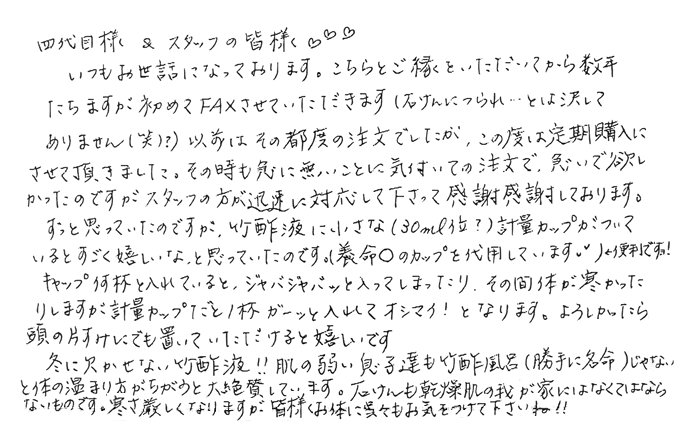 四代目様 & スタッフの皆様へ ♡♡♡
いつもお世話になっております。こちらとご縁をいただいてから数年
たちますが初めてFAXさせていただきます(石けんにつられ…とは決して
ありません(笑)?) 以前はその都度の注文でしたが、この度は定期購入に
させて頂きました。その時も急に無いことに気付いての注文で、急いで欲し
かったのですがスタッフの方が迅速に対応して下さって感謝感謝しております。
ずっと思っていたのですが、竹酢液に小さな(30ml位?)計量カップがついて
いるとすごく嬉しいな、と思っていたのです。(養命〇のカップを代用しています♡)←便利です!
キャップ何杯と入れていると、ジャバジャバッと入ってしまったり、その間体が寒かった
りしますが計量カップだと1杯ガーッと入れてオシマイ!となります。よろしかったら
頭の片すみにでも置いていただけると嬉しいです
冬に欠かせない竹酢液!!肌の弱い息子達も竹酢風呂(勝手に名命)じゃない
と体の温まり方がちがうと大絶賛しています。石けんも乾燥肌の我が家にはなくてはなら
ないものです。寒さ厳しくなりますが皆様くれお体に呉々もお気をつけて下さいね!!